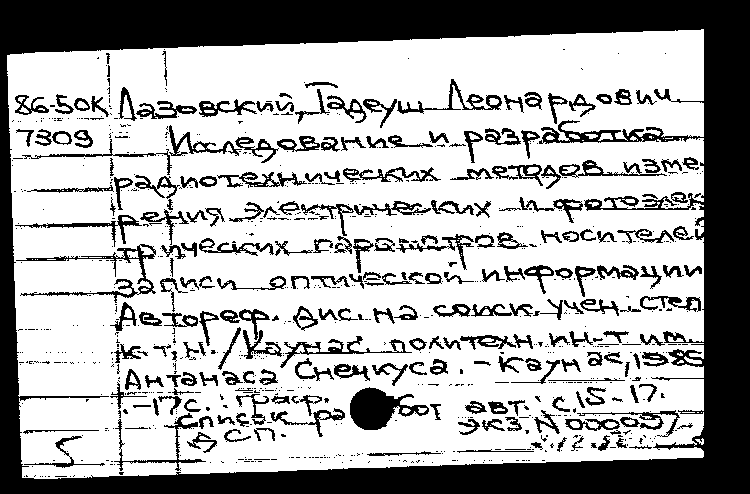 86-50К Лазовский, Тадеуш Леонардович.
7309 Исследование и разработка
радиотехнических методов изме-
рения электрических и фотоэлек
трических параметров носителей
записи оптической информации
Автореф. дис. на соиск. учен. степ
к.т.н. / Каунас. политехн. ин-т им.
Антанаса Снечкуса. - Каунас, 1985
. - 17 с. : граф.
Список работ авт.: с. 15-17.
ДСП. Экз. N 000097
5